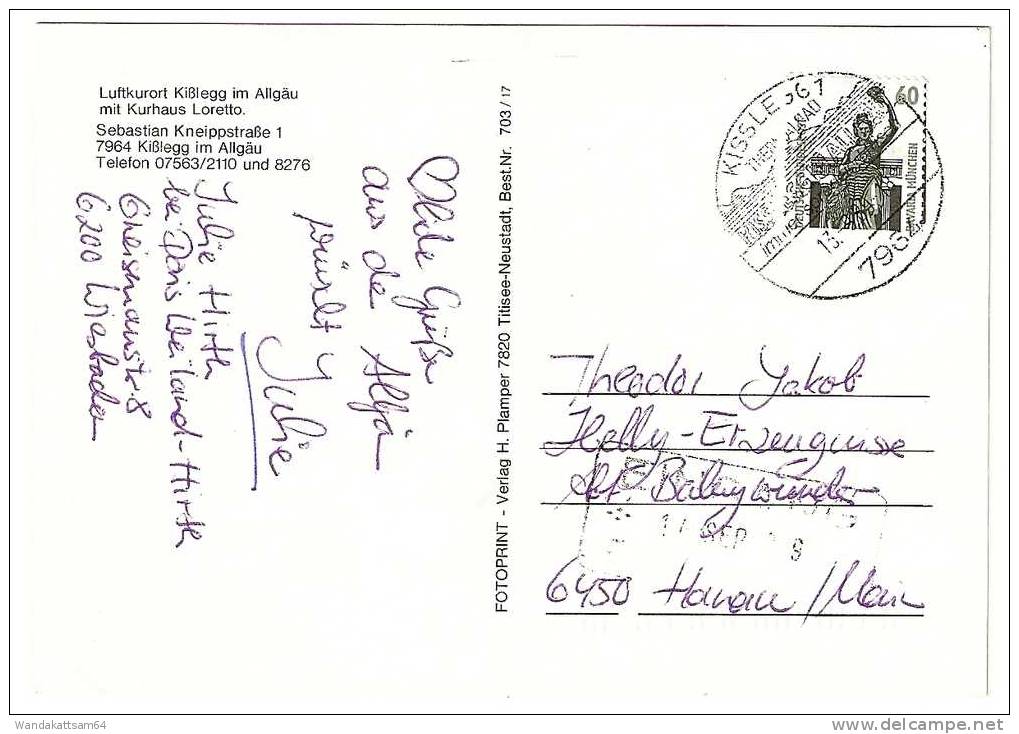 Luftkurort Kißlegg im Allgäu
mit Kurhaus Loretto.
Sebastian Kneippstraße 1
7964 Kißlegg im Allgäu
Telefon 07563/2110 und 8276
Julie Hirth
bei Doris Weiland-Hirth
6200 Wiesbaden
Grüße
aus
Julie
FOTOPRINT - Verlag H. Plamper 7820 Titisee-Neustadt, Best.Nr. 703/17
KISSLEGG 1
60
BAVARIA MÜNCHEN
13.
796
Theodor Jakob
Helly-Erzeugnisse
Abt. Babywunder
6450 Hanau/Main
Wandakattsam64
www.delcampe.net